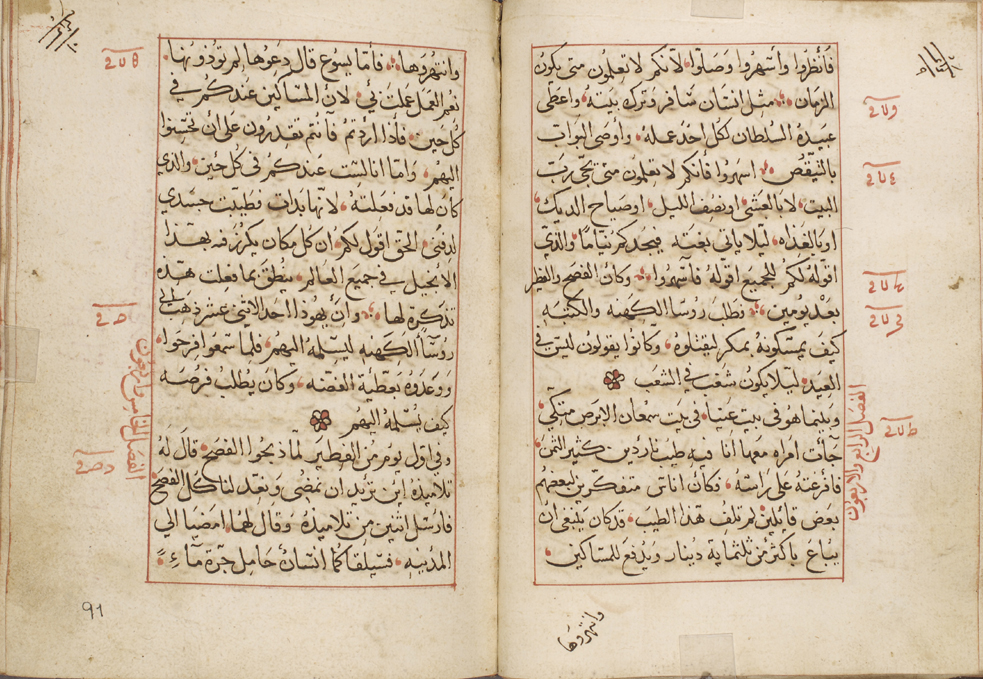 فأنظروا وأسهروا وصلوا لانكم لا تعلمون متى يكون
الزمان مثل انسان سافر وترك بيته واعطى
عبيده السلطان لكل احد عمله واوصى البواب
بالتيقض اسهروا فانكم لا تعلمون متى يجي رب
البيت لا بالعشى او نصف الليل او صياح الديك
او بالغذاه ليلا ياتى بغته فيجدكم نياما والذي
اقوله لكم للجميع اقوله فاسهروا وكان الفصح والفطير
بعد يومين وطلب روسا الكهنه والكتبه
كيف يمسكونه بمكر ليقتلوه وكانوا يقولون ليس في
العيد ليلا يكون شغب في الشعب
وبينما هو في بيت عنيا في بيت سمعان الابرص متكي
جات امراه معها انا فيه طيب ناردين كثير الثمن
فافرغته على راسه وكان اناس متفكرين لبعضهم
بعض قايلين لم تلف هذا الطيب قد كان ينبغى ان
يباع باكثر من ثلثماية دينار ويدفع للمساكين
وانتهروها
الفصل الرابع والاربعون
وانتهروها فأما يسوع قال دعوها لم توذونها
نعم العمل عملت بي لان المساكين عندكم في
كل حين فأذا اردتم فأنتم تقدرون على ان تحسنوا
اليهم واما انا لست عندكم فى كل حين والذي
كان لها قد فعلته لانها بدات فطيبت جسدي
لدفني الحق اقول لكم ان كل مكان يكرز فيه بهذا
الانجيل في جميع العالم ينطق بما فعلت هذه
تذكرة لها وان يهودا احد الاثنى عشر ذهب الي
روسا الكهنه ليسلمه اليهم فلما سمعوا فرحوا
ووعدوه بعطية الفضه وكان يطلب فرصه
كيف يسلمه اليهم
وفي اول يوم من الفطير لما ذبحوا الفصح قال له
تلاميذه اين تريد ان نمضى ونعد لنأكل الفصح
فارسل اثنين من تلاميذه وقال لهما امضيا الي
المدينه فسيلقاكما انسان حامل جرة مآء
الفصل الخامس والاربعون
91